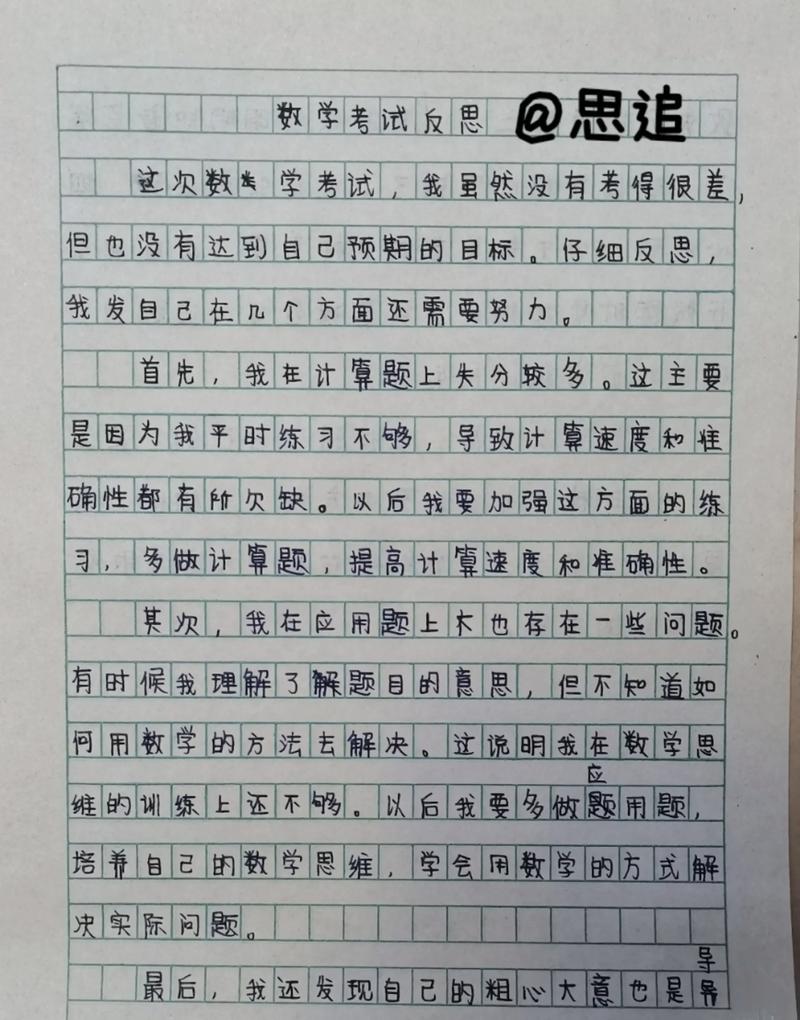 数学考试反思 @思追
这次数学考试，我虽然没有考得很差，
但也没有达到自己预期的目标。仔细反思，
我发自己在几个方面还需要努力。
首先，我在计算题上失分较多。这主要
是因为我平时练习不够，导致计算速度和准
确性都有所欠缺。以后我要加强这方面的练
习，多做计算题，提高计算速度和准确性。
其次，我在应用题上木也存在一些问题。
有时候我理解了解题目的意思，但不知道如
何用数学的方法去解决。这说明我在数学思
维的训练上还不够。以后我要多做应题用题，
培养自己的数学思维，学会用数学的方式解
决实际问题。
最后，我还发现自己的粗心大意也是导